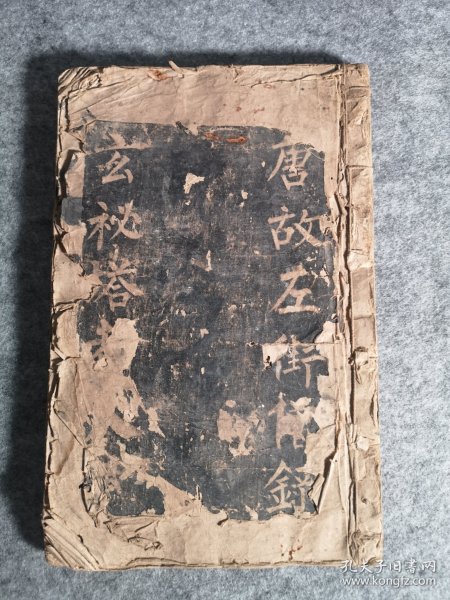 唐故左街僧錄
玄祕塔
孔夫子旧书网
www.kongfz.com